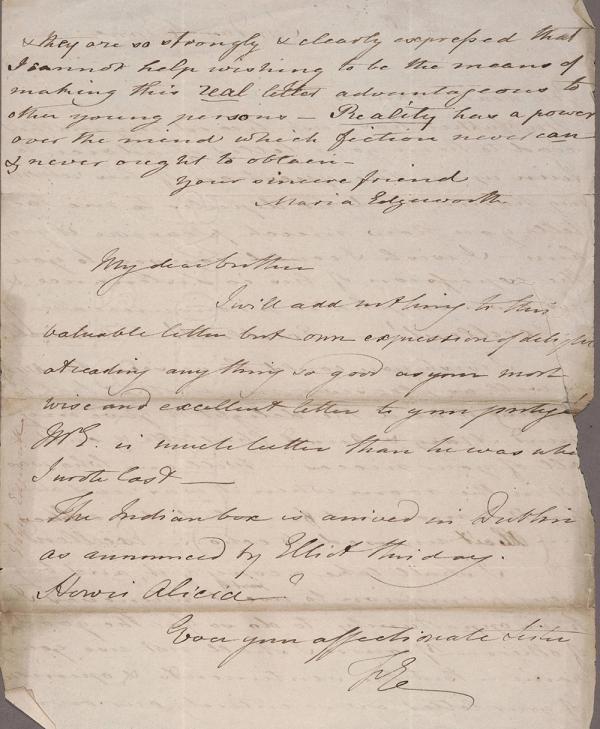 & they are so strongly & clearly expressed that
I cannot help wishing to be the means of
making this real letter advantageous to
other young persons — Reality has a power
over the mind which fiction never can
& never ought to obtain —
Your sincere friend
Maria Edgeworth
My dear brother
I will add nothing to this
valuable letter but own expression of delight
at reading any thing so good as your most
wise and excellent letter to your protegé
Mr E. is much better than he was when
I wrote last —
The Indian box is arrived in Dublin
as announced by Elliot this day.
How is Alicia — ?
Ever your affectionate sister
FE